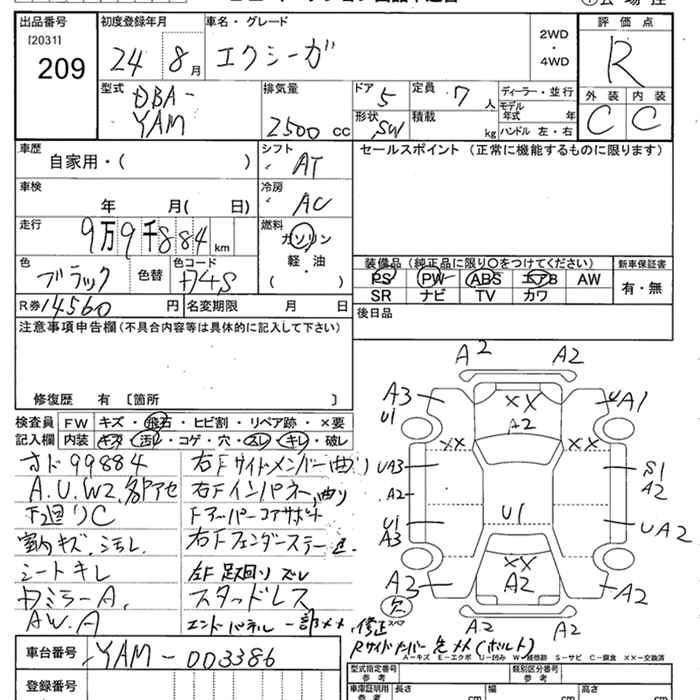 出品番号 初度登録年月 車名・グレード 2WD・4WD 評価点
[2031]
209 24 8月 エクシーガ R
型式 DBA-YAM 排気量 2500 cc ドア 5 定員 7人 ディーラー・並行 外装 内装
形状 SW 積載 kg モデル年式 年式 ハンドル 左・右 C C
車歴 自家用・( ) シフト AT セールスポイント (正常に機能するものに限ります)
車検 年 月( 日) 冷房 AC
走行 9万9千884 km 燃料 ガソリン
色 ブラック 色替 色コード D4S 軽・油 ( )
装備品 (純正品に限り○をつけてください) 新車保証書
PS PW ABS エアB AW 有・無
SR ナビ TV カワ
R券 14560 円 名変期限 月 日 後日品
注意事項申告欄(不具合内容等は具体的に記入して下さい)
修復歴 有 〔箇所 〕
検査員 FW キズ・飛石・ヒビ割・リペア跡・×要
記入欄 内装 キズ・汚れ・コゲ・穴・スレ・キレ・破レ
99884 右Fサイドメンバー曲り
A.U.W2, 右Fインパネ曲り
下廻りC Fアッパーコアサポート
室内キズ、ヨゴレ 右Fフェンダーステー
シートキレ 左F足廻りズレ
ミラーA. スタッドレス
A.W.A エンドパネル一部 修正
Rサイドメンバー先 (ボルト)
A2 A2
A3 U1 XX A2 A1
XX XX
UA3 S1
A2 A2
U1 A3 U1 UA2
XX
A3 A2 A2
欠 スペ A2 A2
車台番号 YAM-003386
A-キズ E-エクボ U-凹み W-補修跡 S-サビ C-腐食 XX-交換済
登録番号 型式指定番号 参考 類別区分番号 参考
車庫証明用 参考 長さ cm 幅 cm 高さ cm